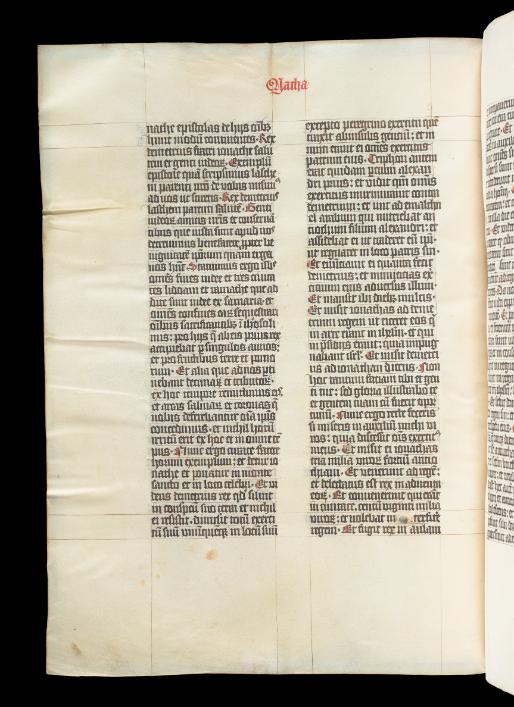 Macha
nathe epistolas de hijs oībꝫ
hunc modū continentes· Rex
demetrius fratri ionathe salu
tem et genti iudeoꝝ· Exemplū
epistole quā scripsimus lastheni
ni parenti nr̄o de vobis misimꝰ
ad vos ut sciretis· Rex demetriꝰ
lastheni parenti salutē· Genti
iudeoꝝ amicis nr̄is et conserva
tibus que iusta sunt apud nos
decrevimus benefacere ꝓpter be
nignitatē ipsorum quam erga
nos hn̄t· Statuimus ergo illis
omēs fines iudee et tres civita
tes lidam et ramathe que ad
dite sunt iudee ex samaria· et
omēs confines eaꝝ sequestrari
oībus sacrificantibꝫ ī iherosoli
mis· pro hijs q̄ ab eis prius rex
accipiebat ꝑ singulos annos·
et pro fructibus terre et pomo
rum· Et alia que ad nos perti
nebant decimaꝝ et tributoꝝ·
ex hoc tempore remittimus eis·
et areas salinaꝝ et coronas q̄
nobis deferebantur oīa ip̄is
concedimus· et nichil horū
irritū erit ex hoc et in omne tē
pus· Nunc ergo curate facere
horum exemplum· et detur io
nathe et ponatur in monte
sancto et in loco celebri· Et vi
dens demetrius rex qd̄ siluit
terra in conspectu suo et nichil
ei resistit· dimisit totū exerci
tū suū unūquēqꝫ in locū suū
excepto peregrino exercitu quē
traxit ab insulis gentiū· et in
imici erant ei om̄es exercitus
patrum eius· Triphon autem
erat quidam partiū alexan
dri prius· et vidit qm̄ omīs
exercitus murmurat contra
demetrium· et ivit ad emalchu
el arabum qui nutriebat an
tiochum filium alexandri· et
assidebat ei ut traderet eū ip̄i·
ut regnaret in loco patris sui·
Et enūtiavit ei quanta fecit
demetrius· et inimicitias ex
ercituum eius adversus illum·
Et mansit ibi diebꝫ multis·
Et misit ionathas ad deme
trium regem ut eiceret eos q̄
in arce erant in ihrlm̄· et qui
in p̄sidijs erant· quia impug
nabant isrl̄· Et misit demetri
us ad ionathan dicens· Non
hoc tantum faciam tibi et gen
ti tue· sed gloria illustrabo te
et gentem tuam cū fuerit opor
tunū· Nunc ergo recte feceris
si miseris in auxiliū michi vi
ros· quia discessit oīs exercitꝰ
meus· Et misit ei ionathas
tria milia viroꝝ fortiū antio
chiam· Et venerunt ad regē·
et delectatus est rex in adventu
eoꝝ· Et convenerunt qui erāt
in civitate· centū viginti milia
viroꝝ· et volebāt interficere
regem· Et fugit rex in aulam